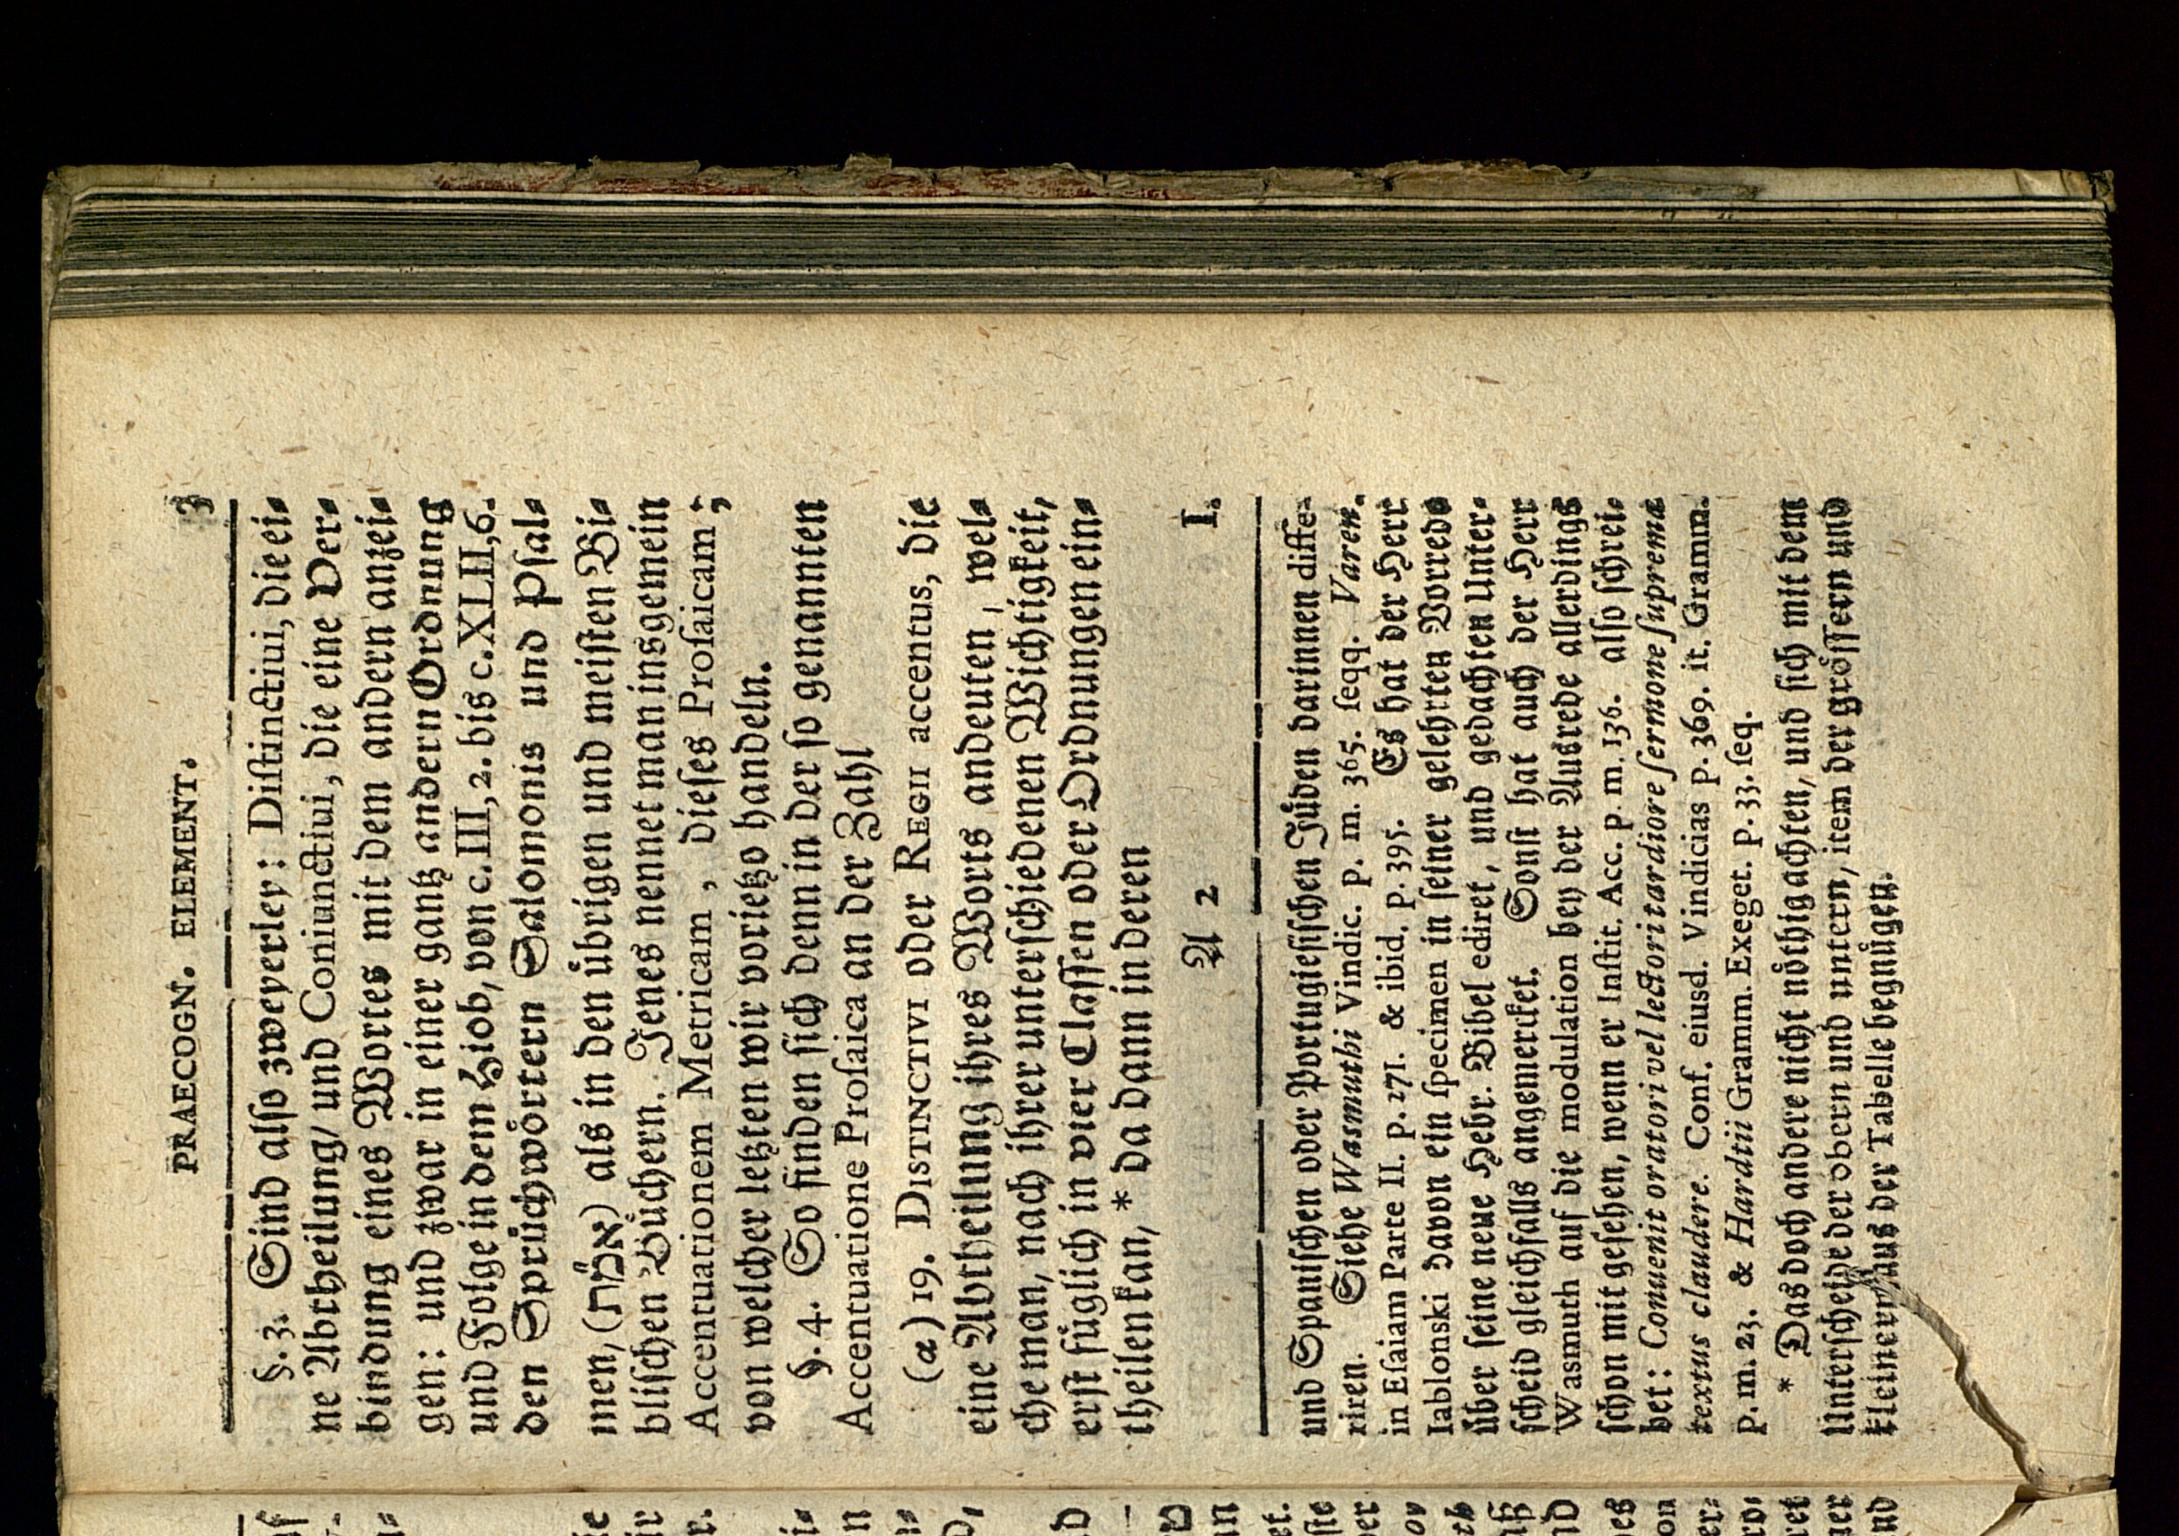 PRAECOGN. ELEMENT. 3
§. 3. Sind also zweyerley: Distinctiui, die ei-
ne Abtheilung/ und Coniunctiui, die eine Ver-
bindung eines Wortes mit dem andern anzei-
gen: und zwar in einer gantz andern Ordnung
und Folge in dem Hiob, von c. III, 2. bis c. XLII, 6.
den Sprüchwörtern Salomonis und Psal-
men, (אמ״ת) als in den übrigen und meisten Bi-
blischen Büchern. Jenes nennet man insgemein
Accentuationem Metricam, dieses Prosaicam;
von welcher letzten wir vorietzo handeln.
§. 4. So finden sich denn in der so genannten
Accentuatione Prosaica an der Zahl
(a) 19. DISTINCTIVI oder REGII accentus, die
eine Abtheilung ihres Worts andeuten, wel-
che man, nach ihrer unterschiedenen Wichtigkeit,
erst füglich in vier Classen oder Ordnungen ein-
theilen kan, * da dann in deren
A 2 I.
und Spanischen oder Portugiesischen Jüden darinnen diffe-
riren. Siehe Wasmuthi Vindic. p. m. 365. seqq. Varen.
in Esaiam Parte II. p. 271. & ibid. p. 395. Es hat der Herr
Iablonski davon ein specimen in seiner gelehrten Vorrede
über seine neue Hebr. Bibel ediret, und gedachten Unter-
scheid gleichfalls angemercket. Sonst hat auch der Herr
Wasmuth auf die modulation bey der Ausrede allerdings
schon mit gesehen, wenn er Instit. Acc. p. m. 136. also schrei-
bet: Conuenit oratori vel lectori tardiore sermone supremæ
textus claudere. Conf. eiusd. Vindicias p. 369. it. Gramm.
p. m. 23. & Hardtii Gramm. Exeget. p. 33. seq.
* Das doch andere nicht nöthig achten, und sich mit dem
Unterscheide der obern und untern, item der grössern und
kleinern aus der Tabelle begnügen.